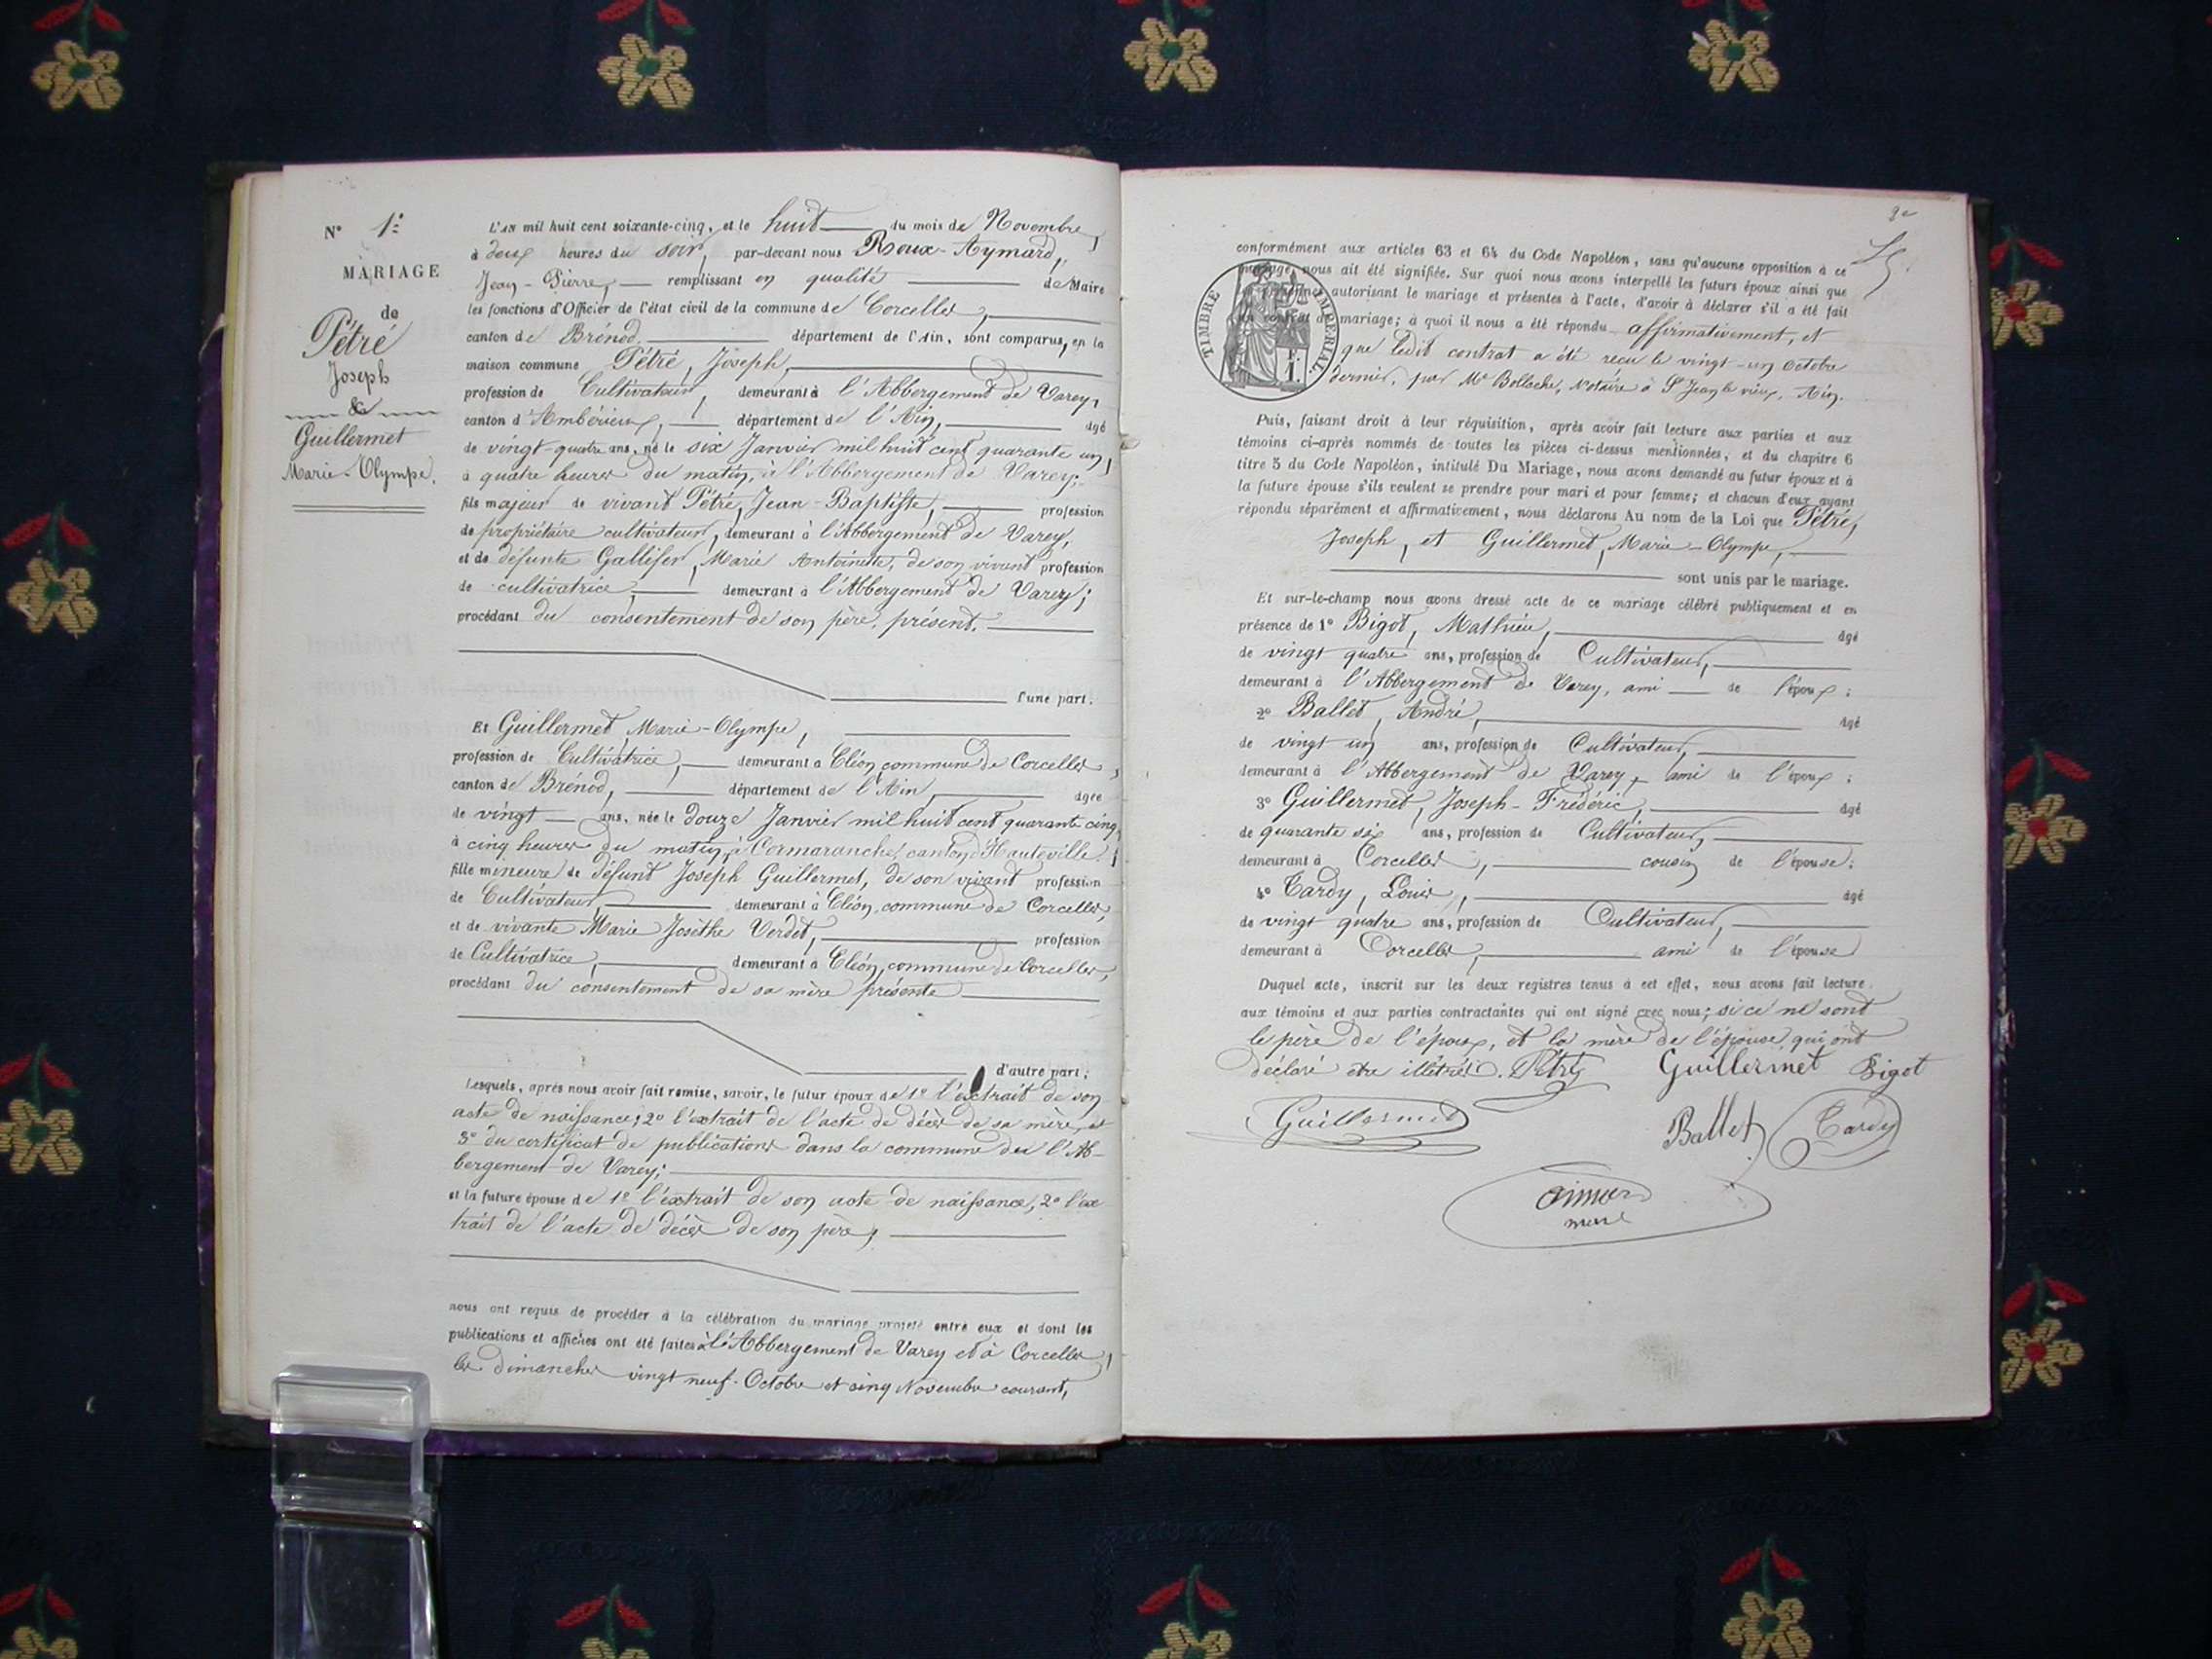 N° 1°
MARIAGE
de
Pétré
Joseph
&
Guillermet
Marie-Olympe.
L'AN mil huit cent soixante-cinq, et le huit du mois de Novembre,
à deux heures du soir, par-devant nous Roux-Aymard,
Jean-Pierre, remplissant en qualité de Maire
les fonctions d'Officier de l'état civil de la commune de Corcelles,
canton de Brénod, département de l'Ain, sont comparus, en la
maison commune Pétré, Joseph,
profession de Cultivateur, demeurant à l'Abbergement de Varey,
canton d'Ambérieux, département de l'Ain, âgé
de vingt-quatre ans, né le six Janvier mil huit cent quarante un,
à quatre heures du matin, à l'Abbergement de Varey;
fils majeur de vivant Pétré, Jean-Baptiste, profession
de propriétaire cultivateur, demeurant à l'Abbergement de Varey,
et de défunte Gallifer, Marie Antoinette, de son vivant profession
de cultivatrice, demeurant à l'Abbergement de Varey;
procédant du consentement de son père, présent.
l'une part.
Et Guillermet, Marie-Olympe,
profession de Cultivatrice, demeurant à Cléon, commune de Corcelles,
canton de Brénod, département de l'Ain, âgée
de vingt ans, née le douze Janvier mil huit cent quarante cinq,
à cinq heures du matin, à Cormaranche, canton d'Hauteville;
fille mineure de défunt Joseph Guillermet, de son vivant profession
de Cultivateur, demeurant à Cléon, commune de Corcelles,
et de vivante Marie Josèthe Verdet, profession
de Cultivatrice, demeurant à Cléon, commune de Corcelles,
procédant du consentement de sa mère présente
d'autre part;
Lesquels, après nous avoir fait remise, savoir, le futur époux de 1° l'extrait de son
acte de naissance; 2° l'extrait de l'acte de décès de sa mère, et
3° du certificat de publications dans la commune de l'Ab-
bergement de Varey;
et la future épouse de 1° l'extrait de son acte de naissance, 2° l'ex
trait de l'acte de décès de son père,
nous ont requis de procéder à la célébration du mariage projeté entre eux et dont les
publications et affiches ont été faites à l'Abbergement de Varey et à Corcelles,
les dimanches vingt neuf Octobre et cinq Novembre courant,
conformément aux articles 63 et 64 du Code Napoléon, sans qu'aucune opposition à ce
mariage nous ait été signifiée. Sur quoi nous avons interpellé les futurs époux ainsi que
autorisant le mariage et présentes à l'acte, d'avoir à déclarer s'il a été fait
un contrat de mariage; à quoi il nous a été répondu affirmativement, et
que ledit contrat a été reçu le vingt-un octobre
dernier, par Me Bollache, Notaire à St Jean le vieux, Ain.
TIMBRE IMPERIAL
1 F.
Puis, faisant droit à leur réquisition, après avoir fait lecture aux parties et aux
témoins ci-après nommés de toutes les pièces ci-dessus mentionnées, et du chapitre 6
titre 5 du Code Napoléon, intitulé Du Mariage, nous avons demandé au futur époux et à
la future épouse s'ils veulent se prendre pour mari et pour femme; et chacun d'eux ayant
répondu séparément et affirmativement, nous déclarons Au nom de la Loi que Pétré,
Joseph, et Guillermet, Marie-Olympe,
sont unis par le mariage.
Et sur-le-champ nous avons dressé acte de ce mariage célébré publiquement et en
présence de 1° Bigot, Mathieu, âgé
de vingt quatre ans, profession de Cultivateur,
demeurant à l'Abbergement de Varey, ami de l'époux;
2° Ballet, André, âgé
de vingt un ans, profession de Cultivateur,
demeurant à l'Abbergement de Varey, ami de l'époux;
3° Guillermet, Joseph-Frédéric, âgé
de quarante six ans, profession de Cultivateur,
demeurant à Corcelles, cousin de l'épouse;
4° Tardy, Louis, âgé
de vingt quatre ans, profession de Cultivateur,
demeurant à Corcelles, ami de l'épouse
Duquel acte, inscrit sur les deux registres tenus à cet effet, nous avons fait lecture
aux témoins et aux parties contractantes qui ont signé avec nous; si ce ne sont
le père de l'époux, et la mère de l'épouse qui ont
déclaré être illétrés. Pétré Guillermet Bigot
Guillermet Ballet Tardy